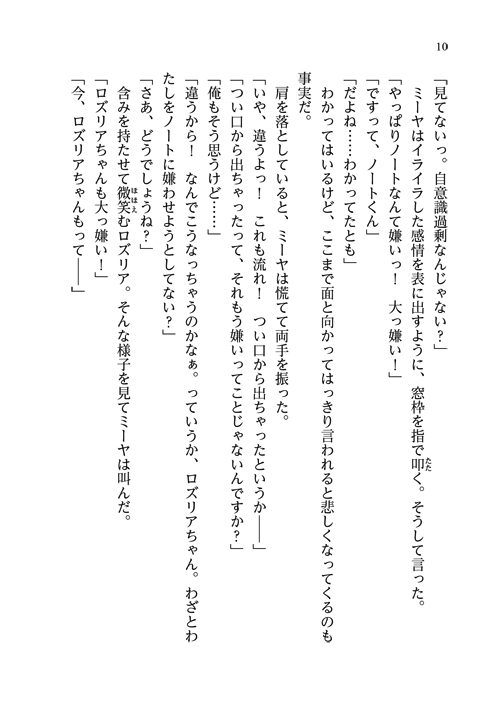 10
「見てないっ。自意識過剰なんじゃない？」
　ミーヤはイライラした感情を表に出すように、窓枠を指で叩く。そうして言った。
「やっぱりノートなんて嫌いっ！　大っ嫌い！」
「ですって、ノートくん」
「だよね……わかってたとも」
　わかってはいるけど、ここまで面と向かってはっきり言われると悲しくなってくるのも
事実だ。
　肩を落としていると、ミーヤは慌てて両手を振った。
「いや、違うよっ！　これも流れ！　つい口から出ちゃったというか――」
「つい口から出ちゃったって、それもう嫌いってことじゃないんですか？」
「俺もそう思うけど……」
「違うから！　なんでこうなっちゃうのかなぁ。っていうか、ロズリアちゃん。わざとわ
たしをノートに嫌わせようとしてない？」
「さあ、どうでしょうね？」
　含みを持たせて微笑むロズリア。そんな様子を見てミーヤは叫んだ。
「ロズリアちゃんも大っ嫌い！」
「今、ロズリアちゃんもって――」